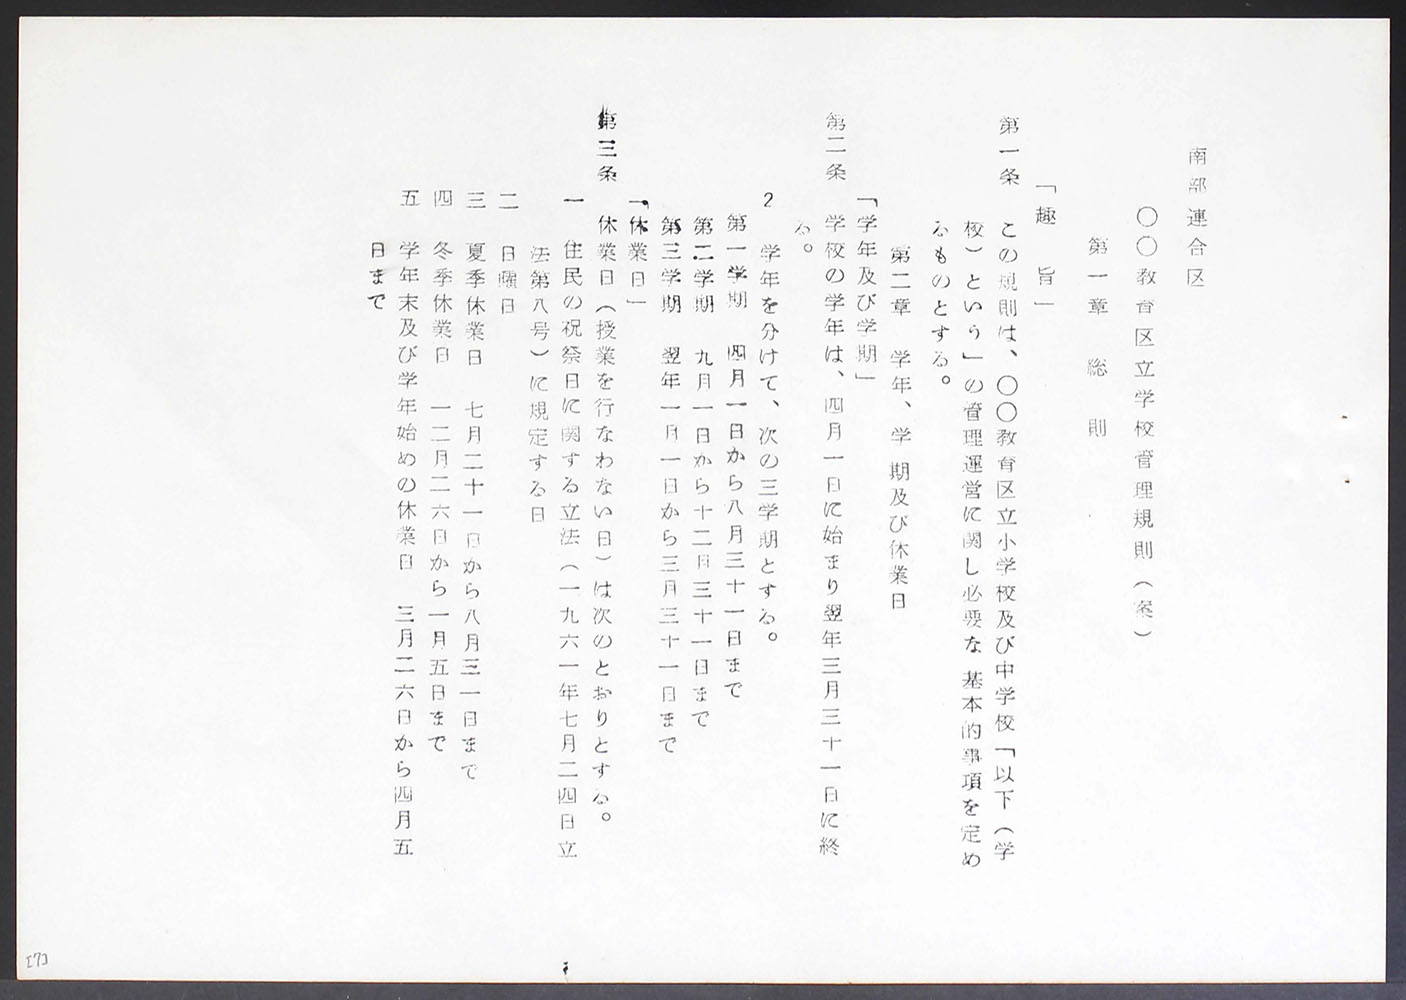 南部連合区
〇〇教育区立学校管理規則（案）
第一章　総　則
「趣　旨」
第一条　この規則は、〇〇教育区立小学校及び中学校「以下（学
校）という」の管理運営に関し必要な基本的事項を定め
るものとする。
第二章　学年、学期及び休業日
「学年及び学期」
第二条　学校の学年は、四月一日に始まり翌年三月三十一日に終
る。
2　学年を分けて、次の三学期とする。
第一学期　四月一日から八月三十一日まで
第二学期　九月一日から十二日三十一日まで
第三学期　翌年一月一日から三月三十一日まで
「休業日」
第三条　休業日（授業を行なわない日）は次のとおりとする。
一　住民の祝祭日に関する立法（一九六一年七月二四日立
法第八号）に規定する日
二　日曜日
三　夏季休業日　七月二十一日から八月三一日まで
四　冬季休業日　一二月二六日から一月五日まで
五　学年末及び学年始めの休業日　三月二六日から四月五
日まで
[7]